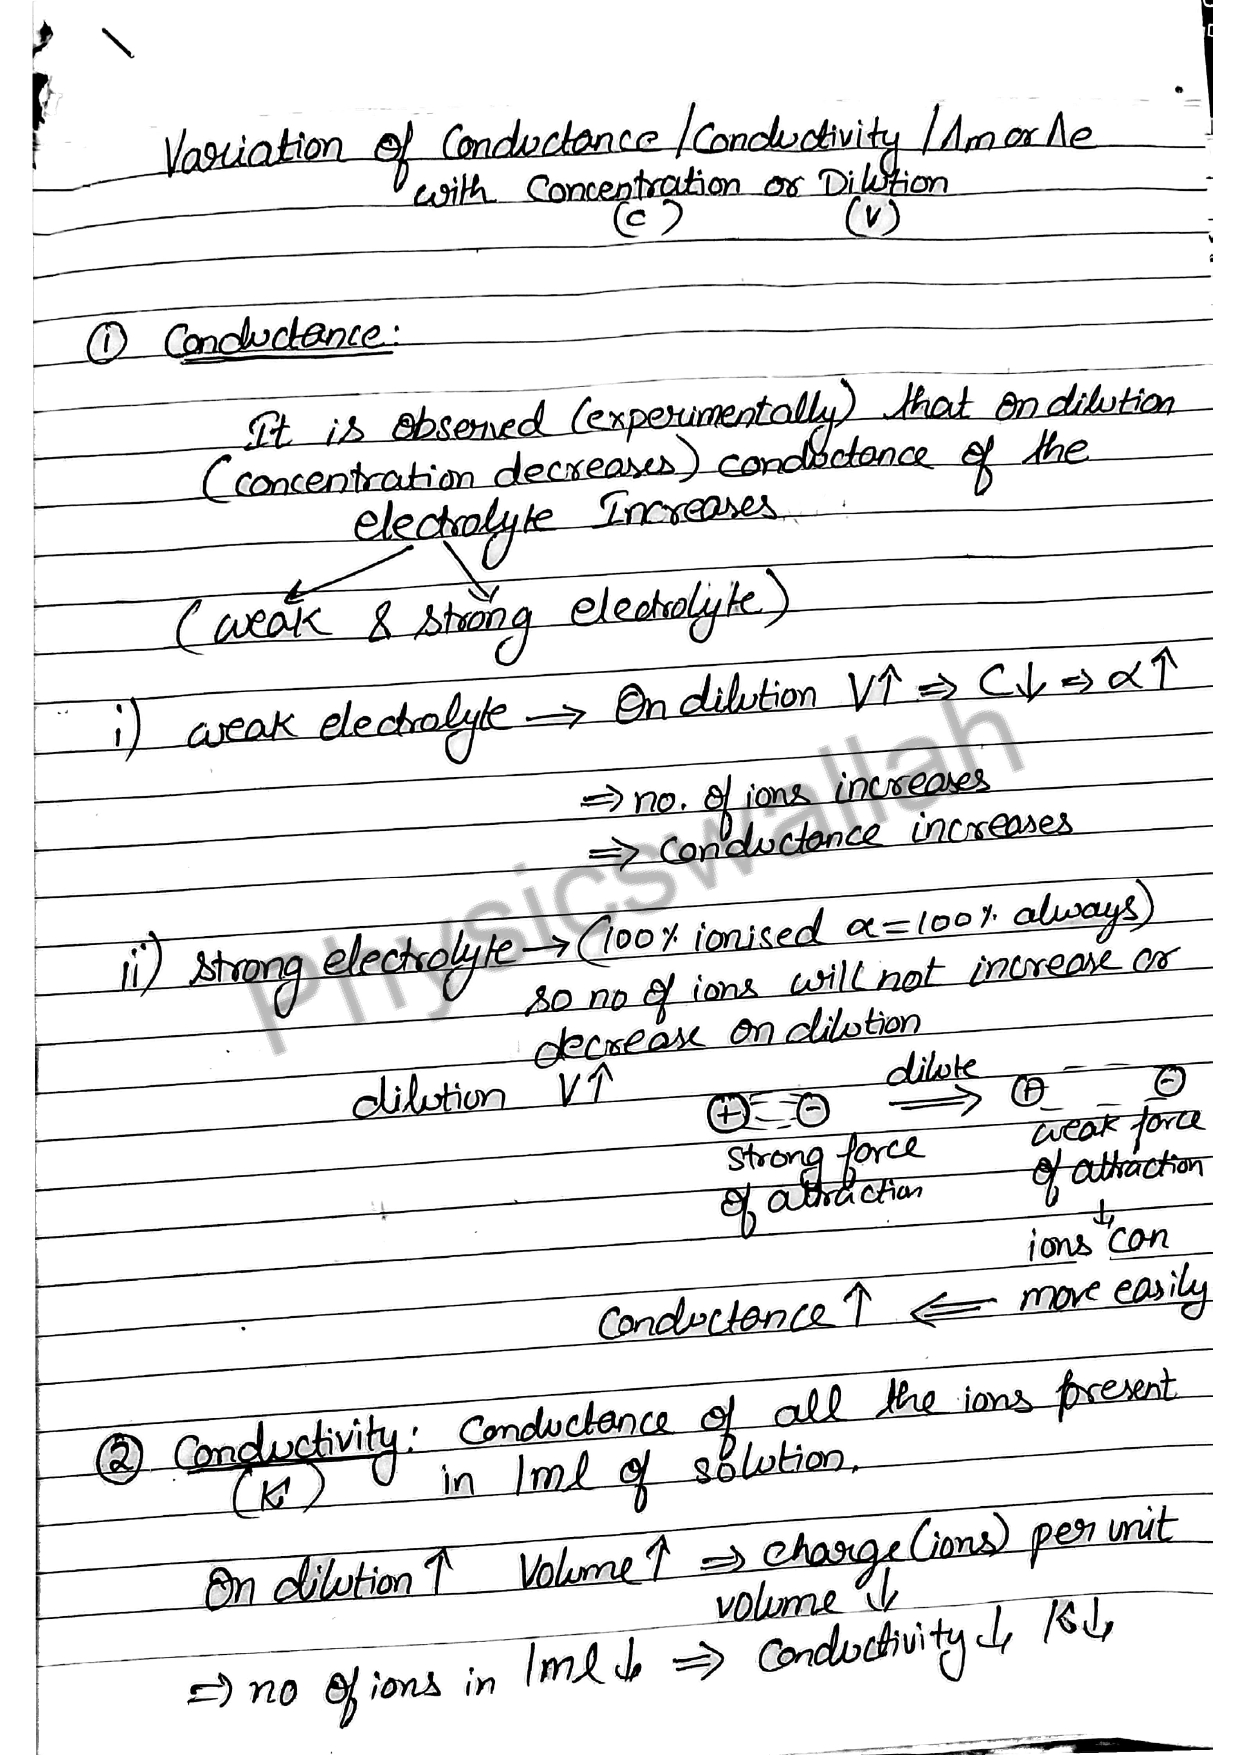 Variation of Conductance / Conductivity / Λm or Λe
with Concentration or Dilution
(C) (V)
① Conductance:
It is observed (experimentally) that on dilution
(concentration decreases) conductance of the
electrolyte Increases
(weak & strong electrolyte)
i) weak electrolyte → On dilution V↑ ⇒ C↓ ⇒ α↑
⇒ no. of ions increases
⇒ Conductance increases
ii) strong electrolyte → (100% ionised α = 100% always)
so no of ions will not increase or
decrease on dilution
dilution V↑
⊕ ⊖ dilute ⇒ ⊕ ⊖
strong force
of attraction
weak force
of attraction
↓
ions can
more easily
Conductance ↑ ⇐
② Conductivity: Conductance of all the ions present
(K) in 1ml of solution.
On dilution ↑ Volume ↑ ⇒ charge (ions) per unit
volume ↓
⇒ no of ions in 1ml ↓ ⇒ Conductivity ↓ K↓
Physicswallah